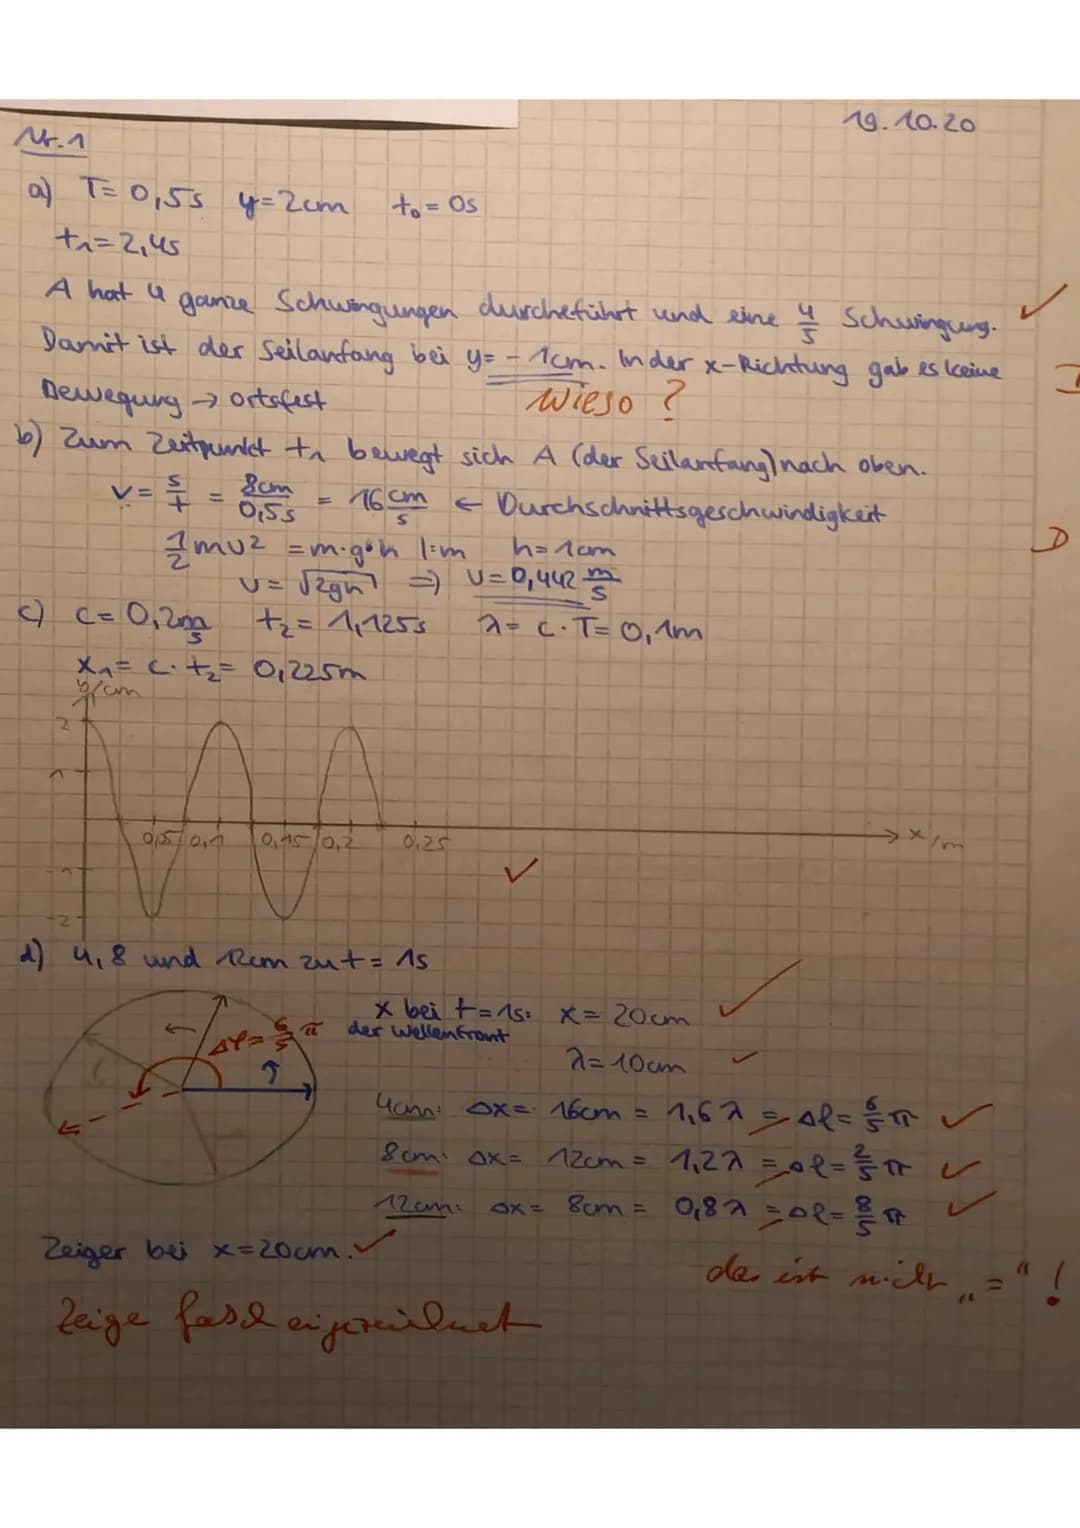 19.10.20
Nr.1
a) T= 0,5s y=2cm t₀= 0s
t₁=2,4s
A hat 4 ganze Schwingungen durcheführt und eine 4/5 Schwingung. ✓
Damit ist der Seilanfang bei y= -1cm. In der x-Richtung gab es keine
Bewegung → ortsfest
Wieso ?
b) Zum Zeitpunkt t₁ bewegt sich A (der Seilanfang) nach oben.
v= s/t = 8cm/0,5s = 16 cm/s ← Durchschnittsgeschwindigkeit
1/2 mv² = m·g·h |:m h=1cm
v= √2gh ⇒ v=0,442 m/s
c) c= 0,2 m/s t₂= 1,125s λ= c·T= 0,1m
x₁= c·t₂= 0,225m
y/cm
2
1
0,05 0,1 0,15 0,2 0,25 x/m
-1
-2
✓
d) 4, 8 und 12cm zu t= 1s
x bei t=1s: x= 20cm ✓
der Wellenfront
λ=10cm ✓
Δφ= 6/5 π
4cm: Δx= 16cm = 1,6λ = Δφ= 6/5 π ✓
8cm: Δx= 12cm = 1,2λ = Δφ= 2/5 π ✓
12cm: Δx= 8cm = 0,8λ = Δφ= 8/5 π ✓
Zeiger bei x=20cm. ✓
das ist nicht „=“ !
Zeige falsch eingezeichnet